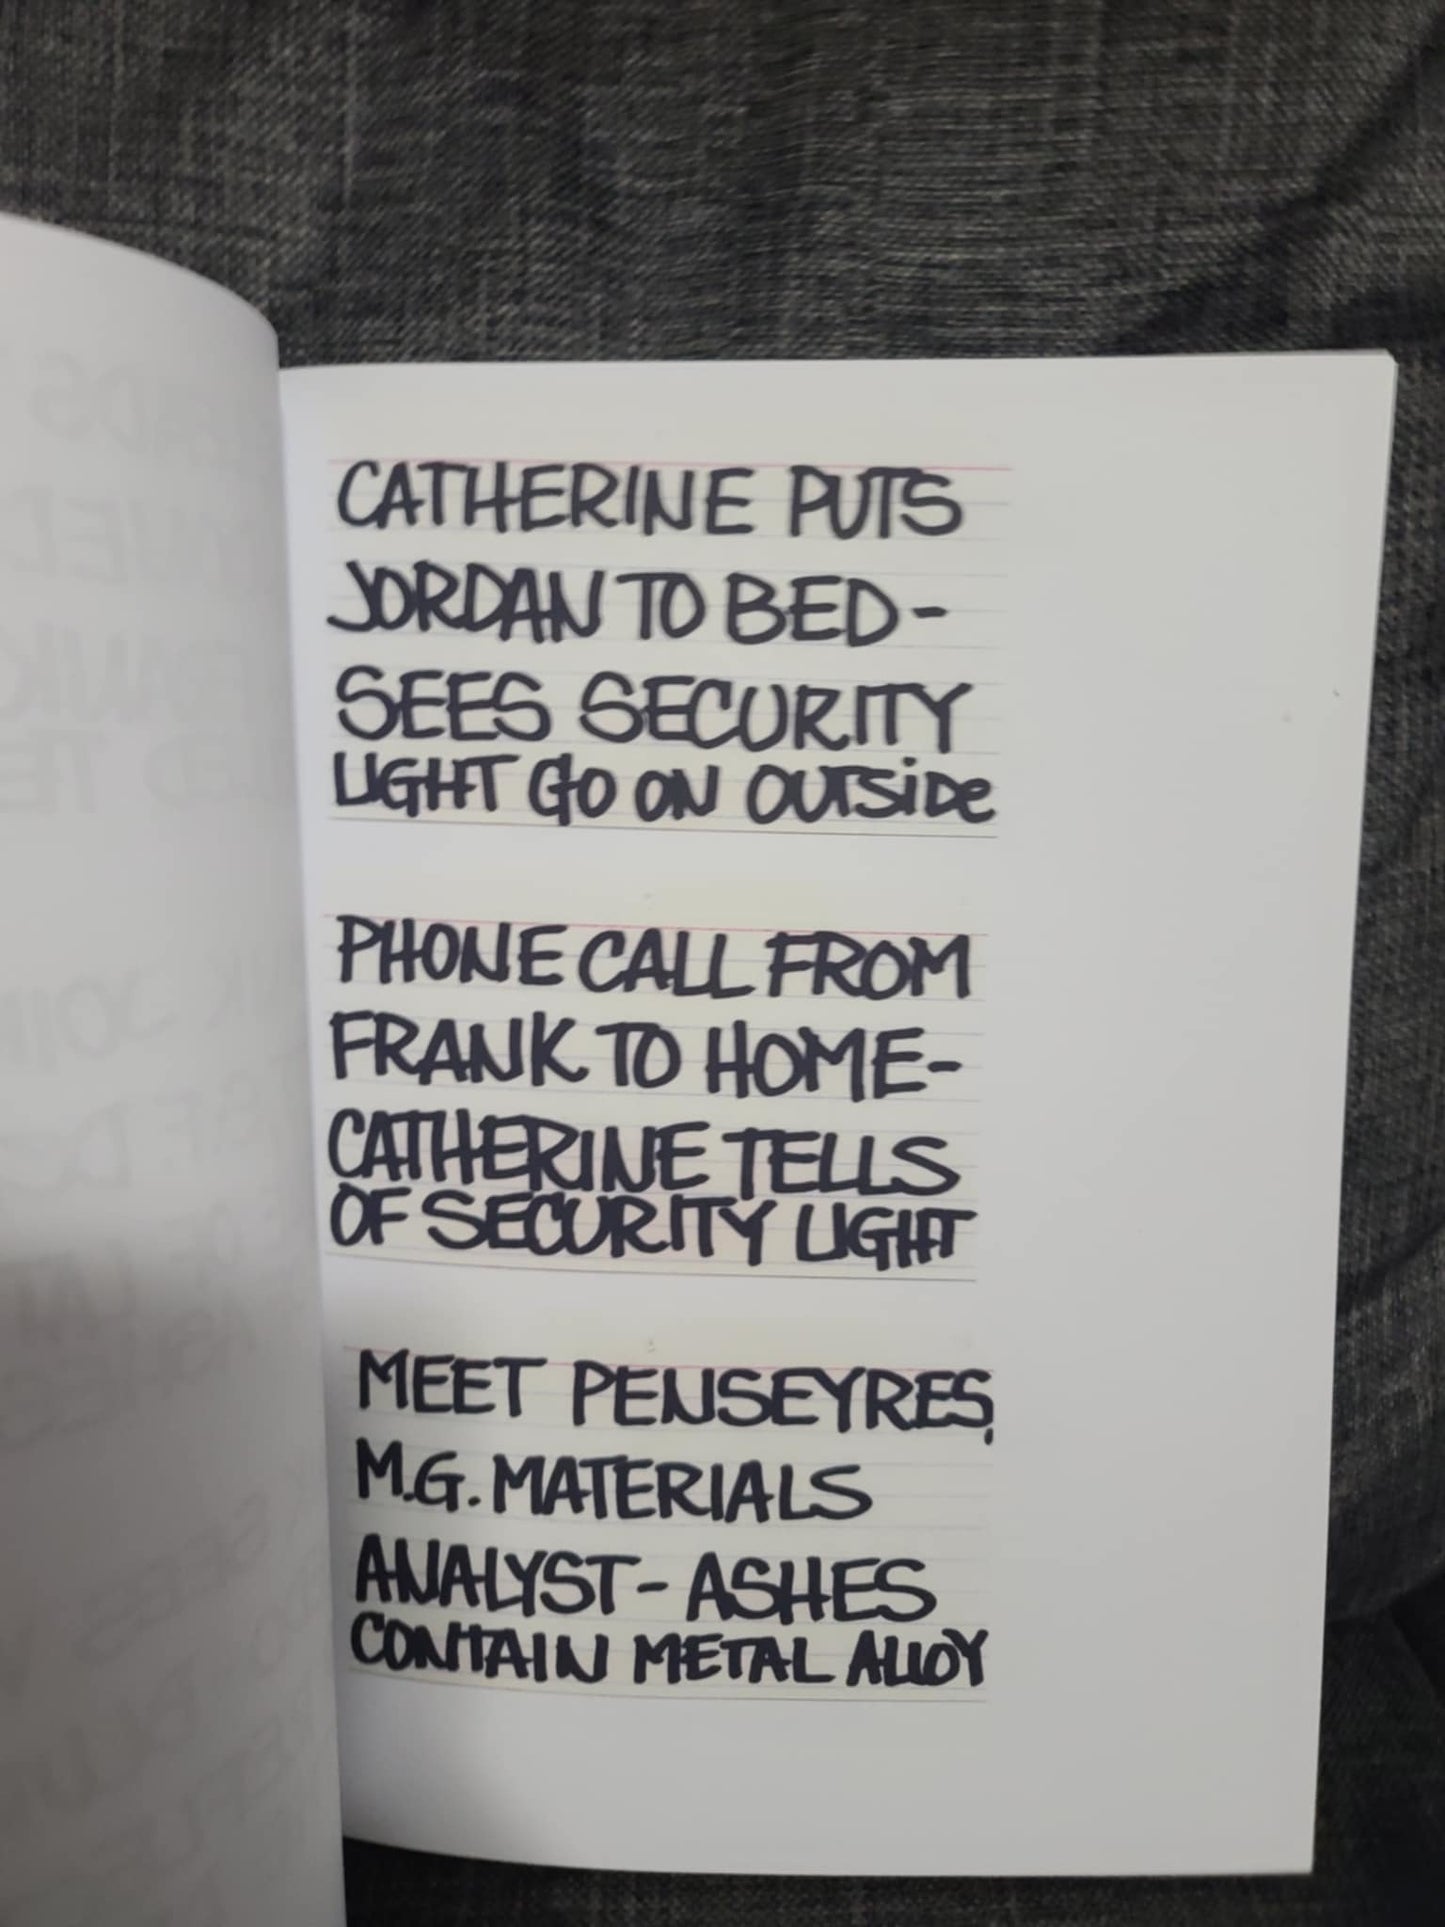 CATHERINE PUTS
JORDAN TO BED-
SEES SECURITY
LIGHT GO ON OUTSiDe
PHONE CALL FROM
FRANK TO HOME-
CATHERINE TELLS
OF SECURITY LIGHT
MEET PENSEYRES,
M.G. MATERIALS
ANALYST- ASHES
CONTAIN METAL ALLOY